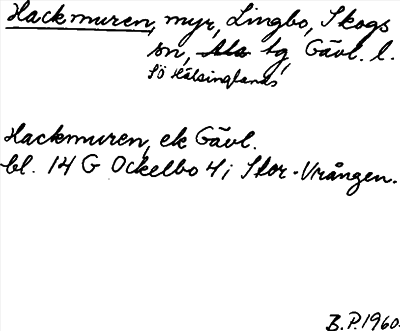 Hackmuren, myr, Lingbo, Skogs
sn, Ala tg, Gävl. l.
Sö Hälsinglands
Hackmuren, ek Gävl.
bl. 14 G Ockelbo 4i Stor-Vrången.
B.P. 1960.